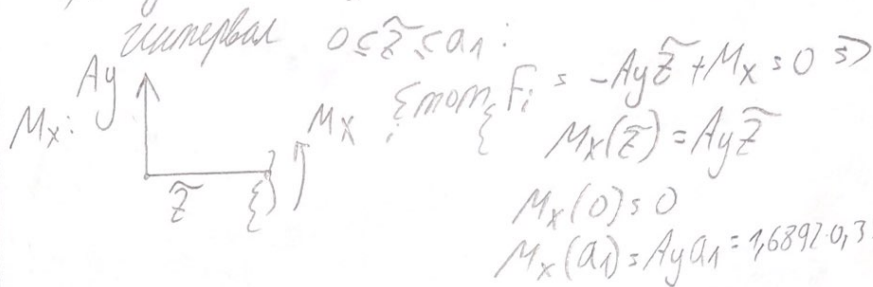 интервал 0 ≤ z̃ ≤ a₁:
Ay
Mx:
z̃
ξ
Mx
Σmom_ξ Fᵢ = -Ay z̃ + Mx = 0 ⇒
Mx(z̃) = Ay z̃
Mx(0) = 0
Mx(a₁) = Ay a₁ = 1,6892·0,3